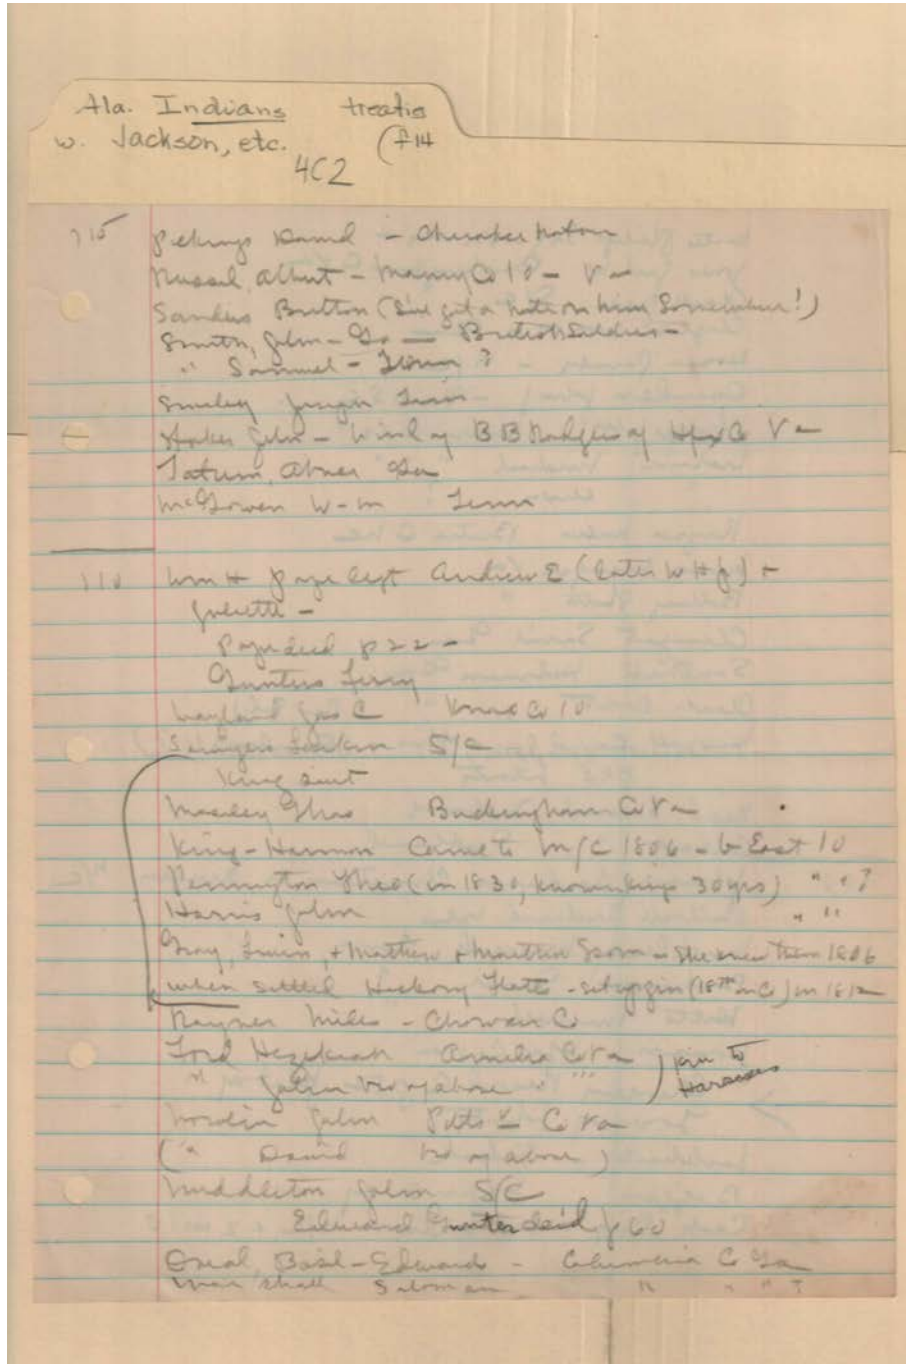 Ala. Indians treaties
w. Jackson, etc. (f14
4C2
715
David - Cherokee nation
Russel, Albert - Maury Co 10 - Va
Sanders Britton (I've got a note on him Somewhere!)
Smith, John - Ga - British Soldier -
" Samuel - Tenn ?
Smiley Tenn
Stokes John - B B Rodgers of Hfx Co Va
Tatum, Abner Ga
McGowen Wm Tenn
110
Wm H Andrew E (later W H J) +
Juliette -
deed p 22 -
Gunters Ferry
Wayland Jas C Knox Co 10
S/C
King suit
Mosley Thos Buckingham Co Va
King - Harmon Came to M/C 1806 - E East 10
Pennington Theo (in 1830, known Kings 30 yrs) " " ?
Harris John " "
Gray, + Matthew + Martha - She knew them 1806
when settled Hickory Flatts - set up gin (18th in Co) in 1812
Rayner Miles - Chowan Co
Ford Hezekiah Amelia Co Va
" John bro of above " " "
) kin to
John Pitts Co Va
( " David bro of above )
Middleton John S/C
Edward Gunter deed p 60
Oneal, Basil - Edward - Columbia Co Ga
Marshall Soloman " " " ?